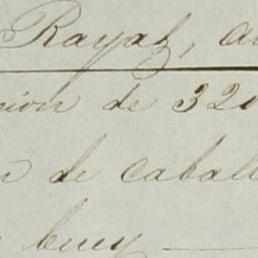 Rayas, a
ión de 320
de caball
buey